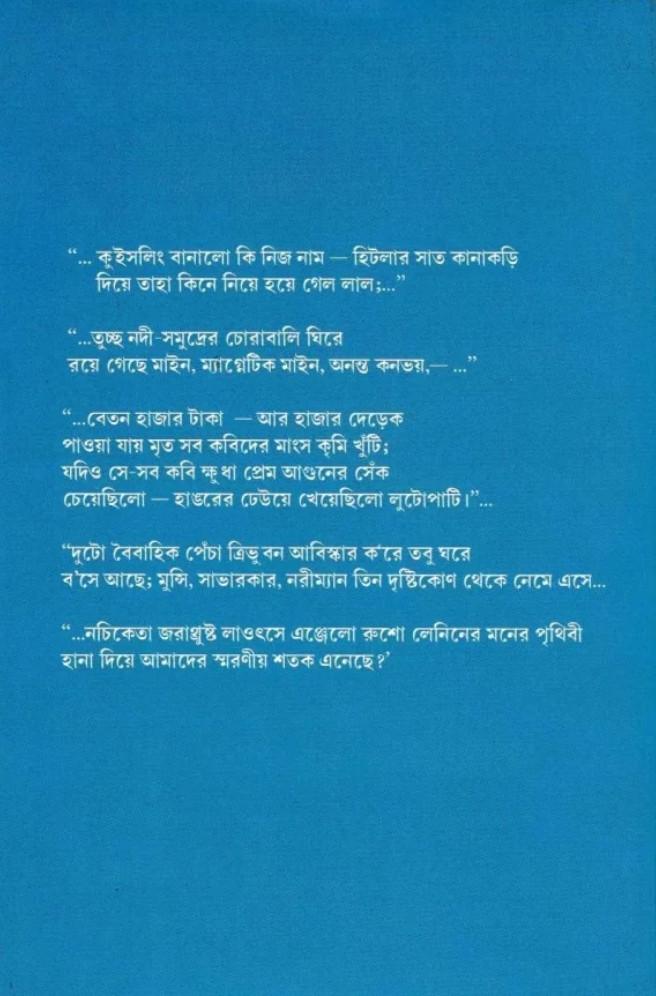 “... কুইসলিং বানালো কি নিজ নাম — হিটলার সাত কানাকড়ি
দিয়ে তাহা কিনে নিয়ে হয়ে গেল লাল;...”
“...তুচ্ছ নদী-সমুদ্রের চোরাবালি ঘিরে
রয়ে গেছে মাইন, ম্যাগ্নেটিক মাইন, অনন্ত কনভয়,— ...”
“...বেতন হাজার টাকা — আর হাজার দেড়েক
পাওয়া যায় মৃত সব কবিদের মাংস কৃমি খুঁটি;
যদিও সে-সব কবি ক্ষুধা প্রেম আগুনের সেঁক
চেয়েছিলো — হাঙরের ঢেউয়ে খেয়েছিলো লুটোপাটি।”...
“দুটো বৈবাহিক পেঁচা ত্রিভুবন আবিস্কার ক'রে তবু ঘরে
ব'সে আছে; মুন্সি, সাভারকার, নরীম্যান তিন দৃষ্টিকোণ থেকে নেমে এসে...
“...নচিকেতা জরাথ্রুষ্ট লাওৎসে এঞ্জেলো রুশো লেনিনের মনের পৃথিবী
হানা দিয়ে আমাদের স্মরণীয় শতক এনেছে?’